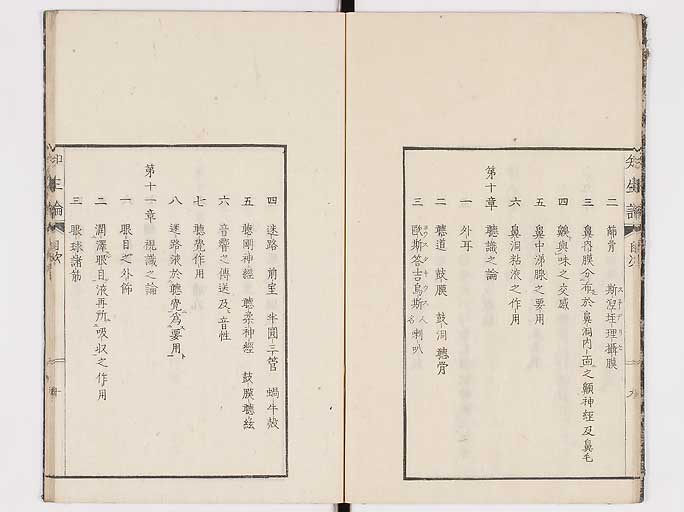 知生論
目次
二 篩骨 斯涅垤理攝膜
三 鼻脊膜分布於鼻洞内面之顖神経及鼻毛
四 齅與味之交感
五 鼻中涕腺之要用
六 鼻洞粘液之作用
第十章 聴識之論
一 外耳
二 聴道 鼓膜 鼓洞 聴骨
三 歐斯答吉烏斯人名喇叭
四 迷路 前室 半圓三管 蝸牛殻
五 聴剛神経 聴柔神経 鼓膜聴絃
六 音響之傳送及音性
七 聴覺作用
八 迷路液於聴覺為要用
第十一章 視識之論
一 眼目之外飾
二 潤澤眼目液再所吸収之作用
三 眼球諸筋
知生論
目次